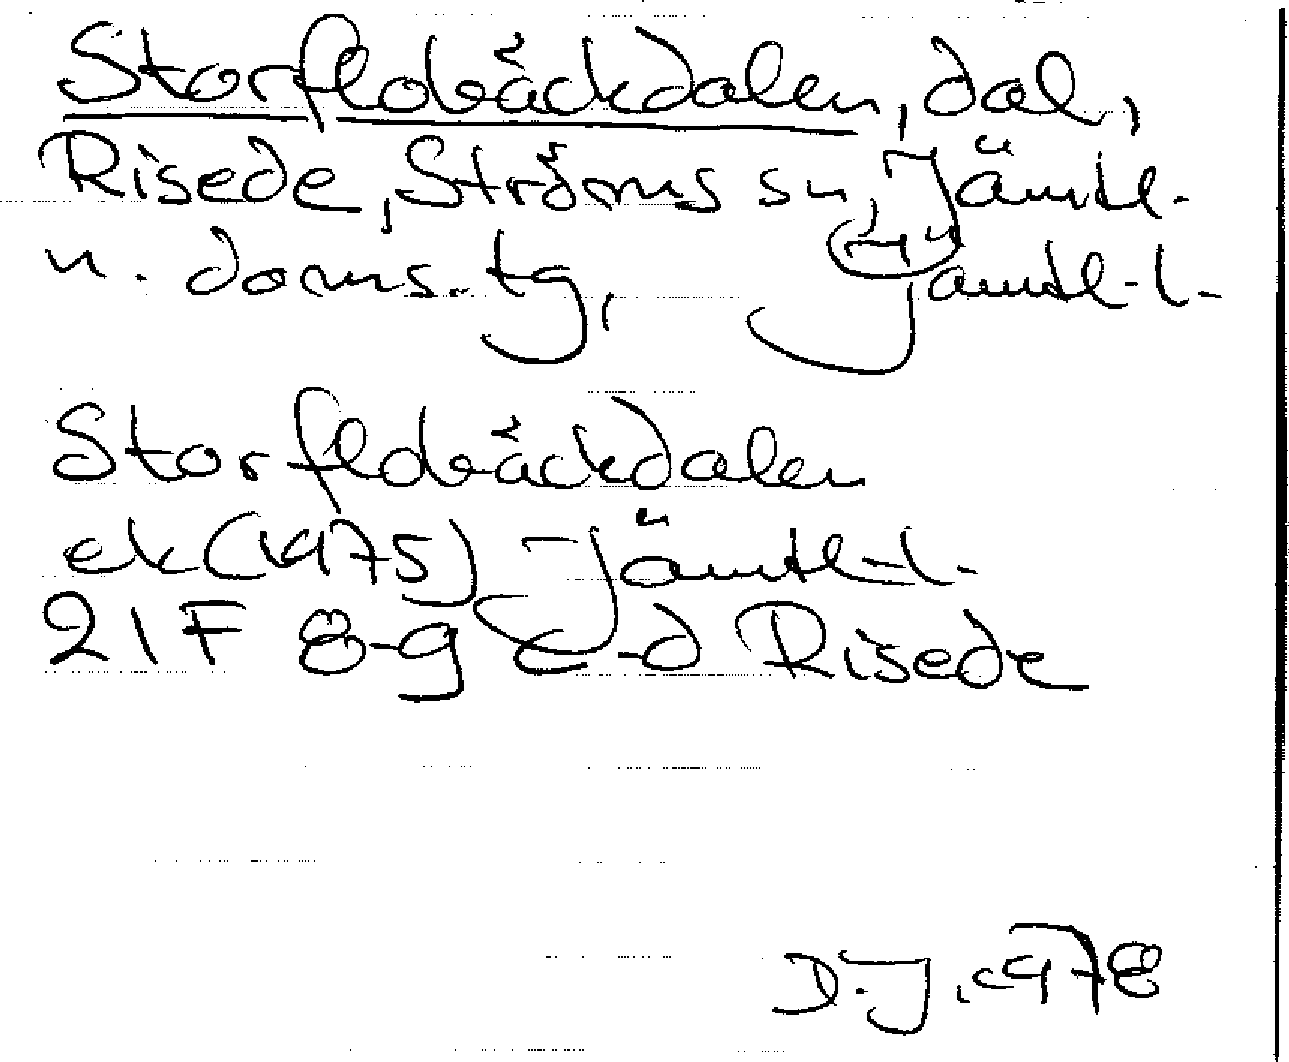 Storflobäckdalen, dal,
Risede, Ströms sn, Jämtl.
n. doms. tg, Jämtl. l.
Storflobäckdalen
ek (1975) Jämtl. l.
21F 8-g c-d Risede
D.J. 1978